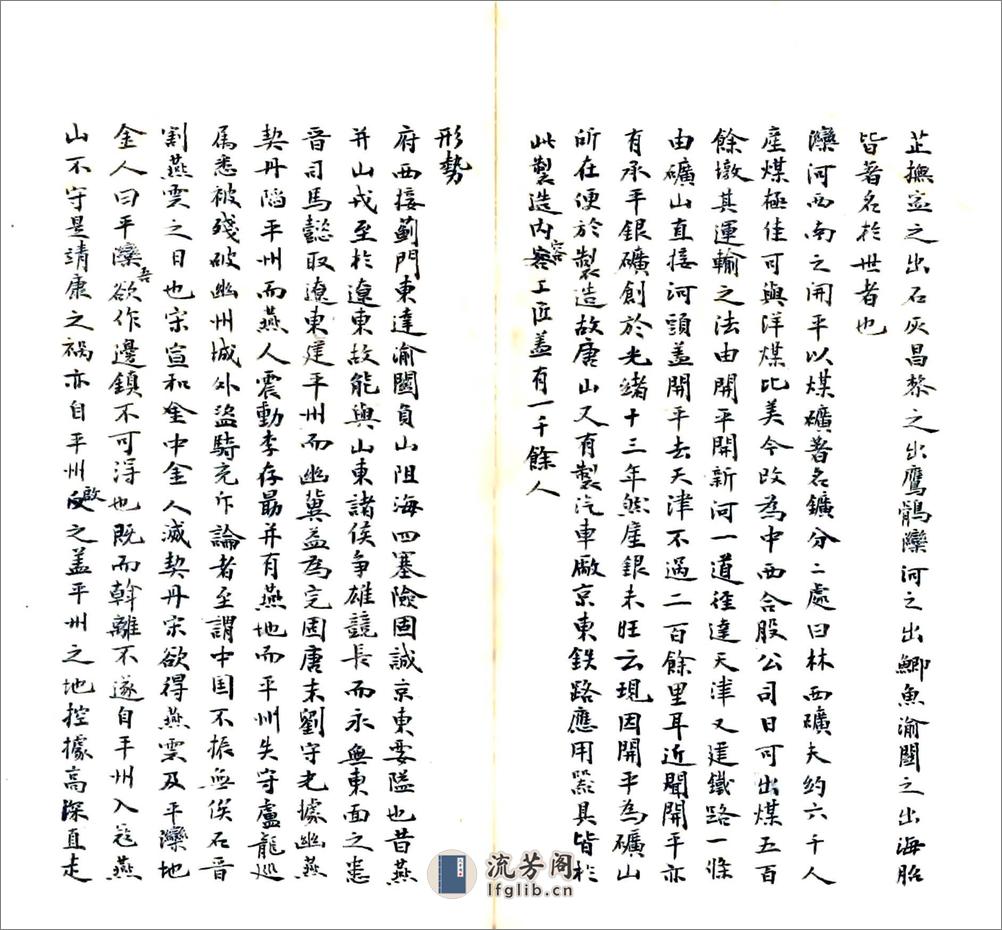 芷撫寧之出石灰昌黎之出鷹鶻灤河之出鯽魚渝關之出海胎
皆著名於世者也
灤河西南之開平以煤礦著名鑛分二處曰林西礦夫約六千人
產煤極佳可與洋煤比美今改為中西合股公司日可出煤五百
餘墩其運輸之法由開平開新河一道徑達天津又建鐵路一條
由礦山直接河頭蓋開平去天津不過二百餘里耳近聞開平亦
有承平銀礦創於光緒十三年然產銀未旺云現因開平為礦山
所在便於製造故唐山又有製汽車廠京東鉄路應用器具皆於
此製造內容工匠蓋有一千餘人
形勢
府西接薊門東達渝關負山阻海四塞險固誠京東要隘也昔燕
并山戎至於遼東故能與山東諸侯爭雄競長而永無東面之患
晉司馬懿取遼東建平州而幽冀益為完固唐末劉守光據幽燕
契丹陷平州而燕人震動李存勗并有燕地而平州失守盧龍巡
属悉被殘破幽州城外盜騎充斥論者至謂中国不振無俟石晉
割燕雲之日也宋宣和全中金人滅契丹宋欲得燕雲及平灤地
金人曰平灤吾欲作邊鎮不可淂也既而斡離不遂自平州入寇燕
山不守是靖康之禍亦自平州啟之盖平州之地控據高深直走
流芳阁
lfglib.cn